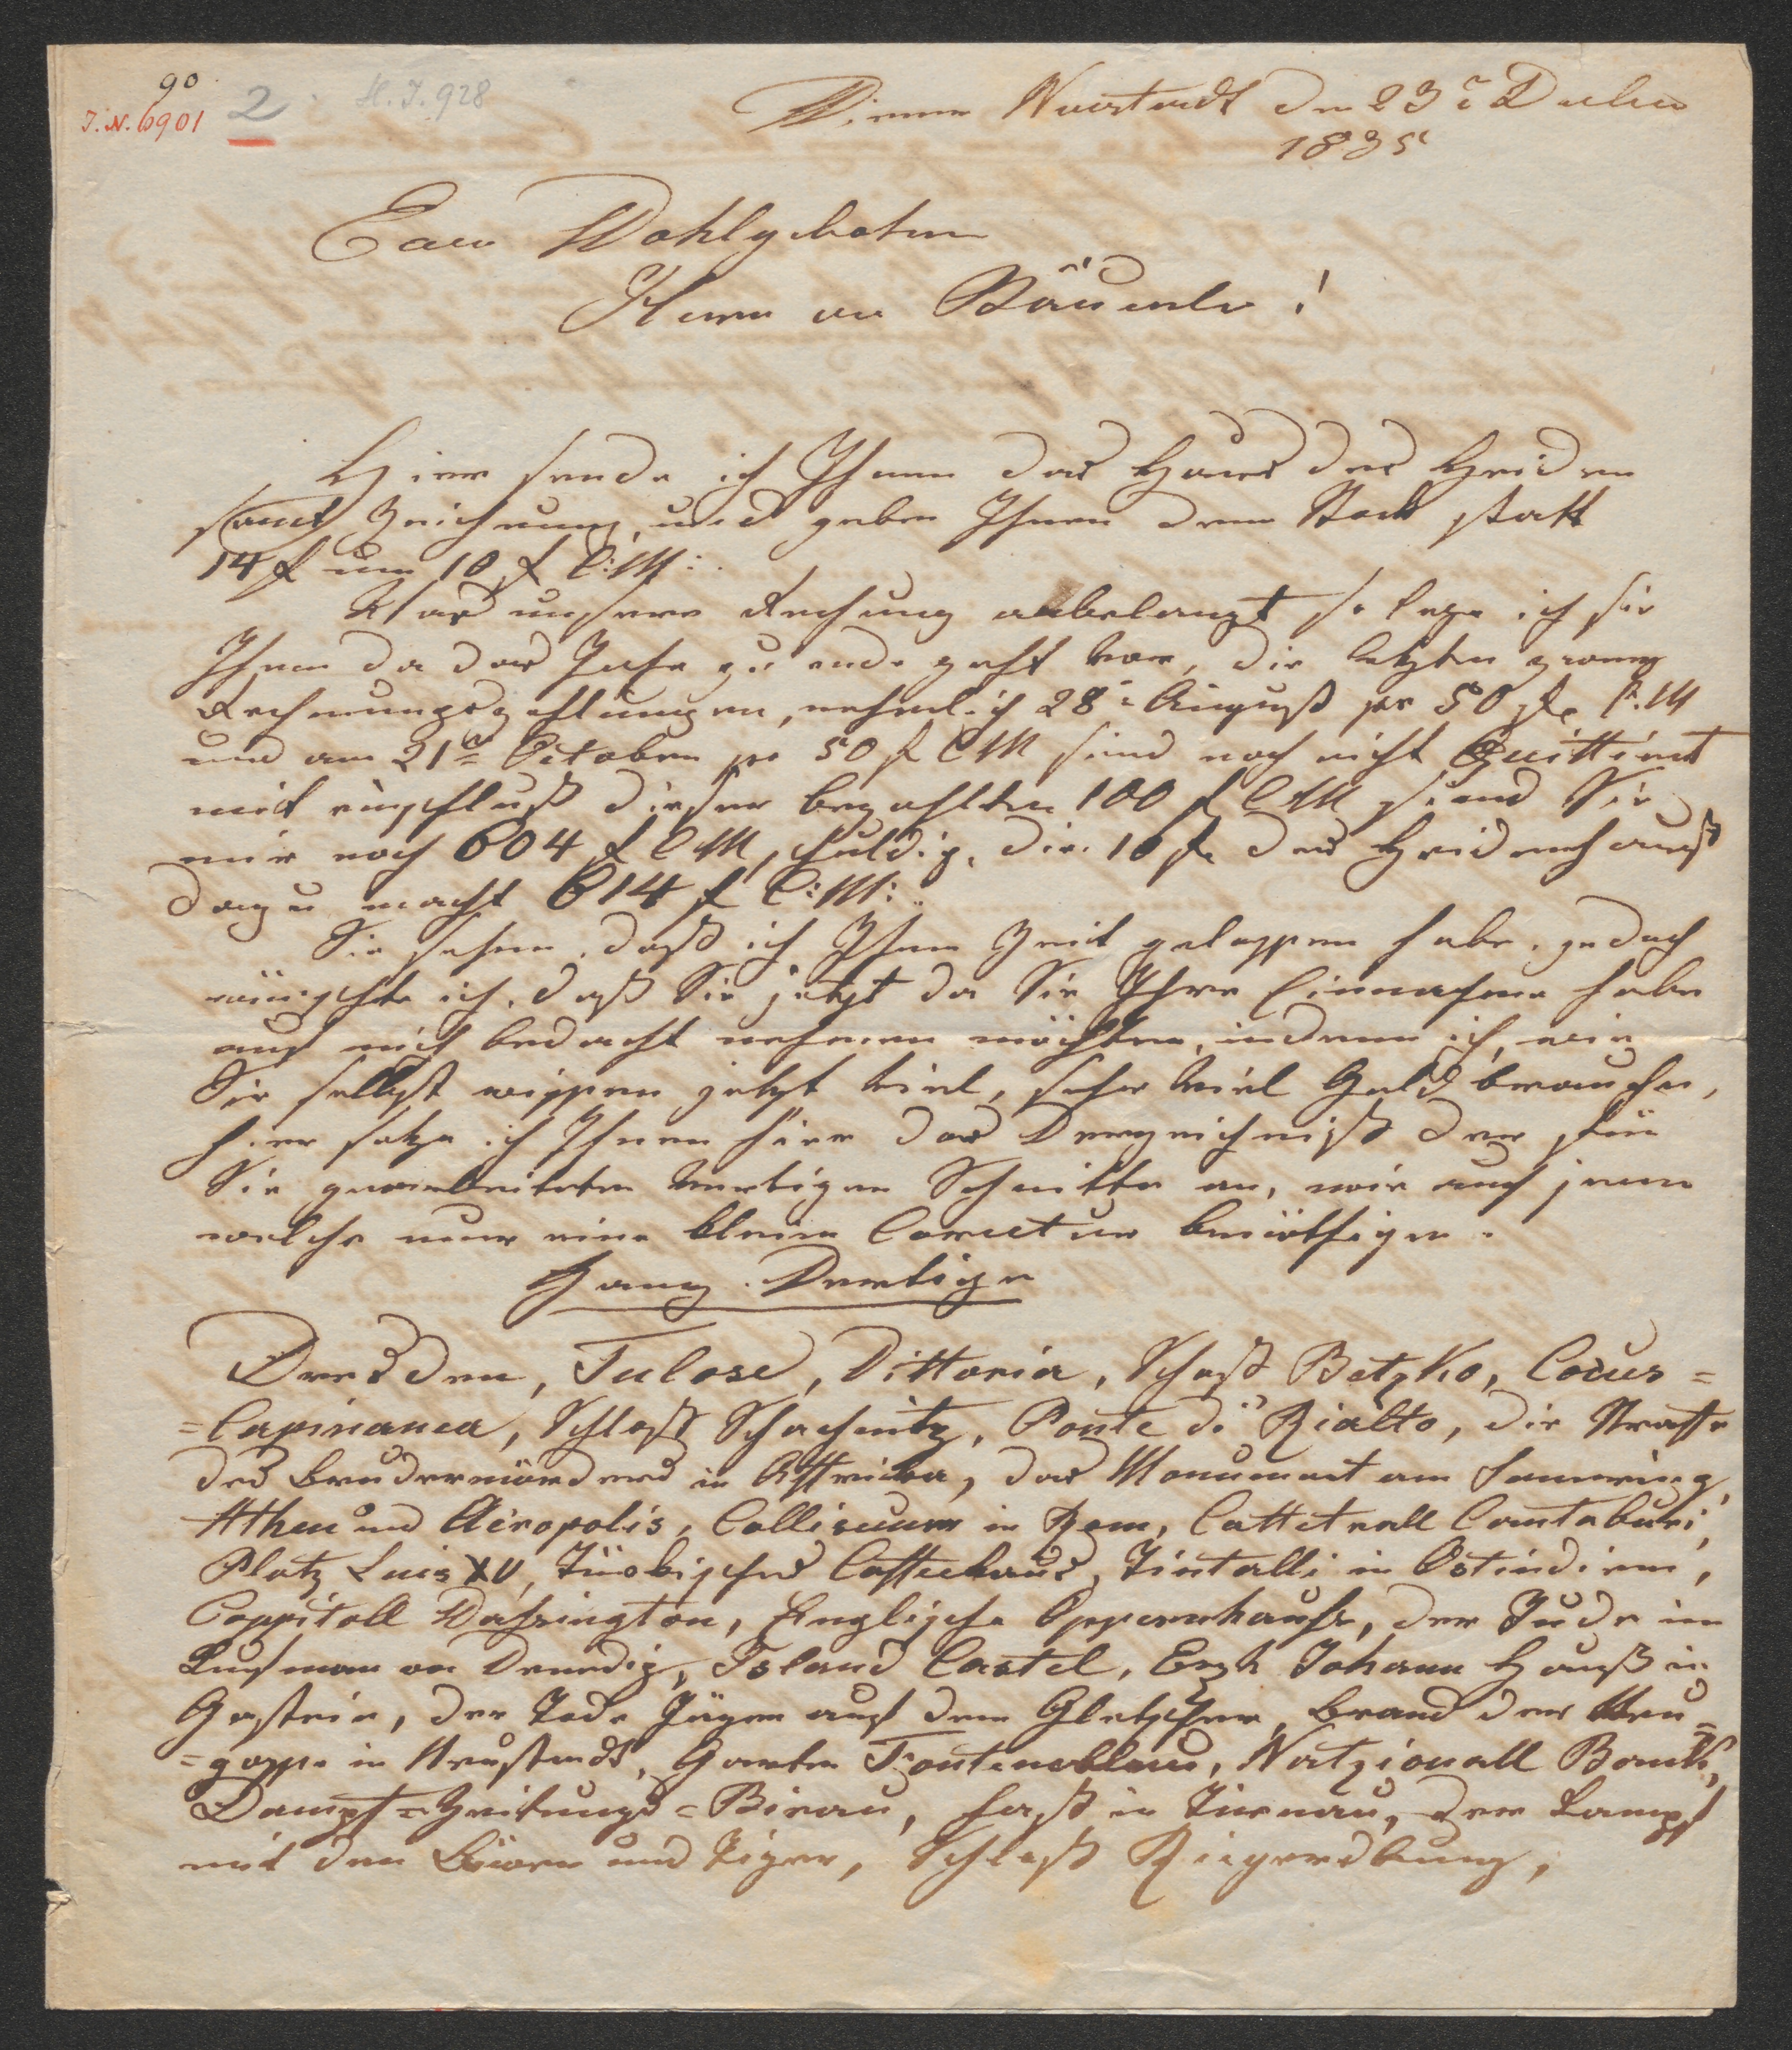 90
J.N. 6901 2 H.J. 928
Wiener Neustadt den 23t
1835
Euer Wohlgeboren
Herrn von Bäuerle!
Hier sende ich Ihnen das Haus des Heiden
samt Zeichnung, und geben Ihnen den Stock statt
14 f um 10 f C:M:
Was unsere Rechung anbelangt so lege ich sie
Ihnen da das Jahr zu ende geht vor, die letzten zwey
Rechnungszahlungen, nehmlich 28t August pr 50 f C.M
und am 21ten October pr 50 f CM sind noch nicht Quittirt
mit einschluß dieser bezahlten 100 f CM sind Sie
mir noch 604 f CM schuldig, die 10 f des Heidenhauß
dazu macht 614 f C:M:
Sie sehen, daß ich Ihnen Zeit gelassen habe, jedoch
wünschte ich, daß Sie jetzt da Sie Ihre Einnahme habe
auf mich bedacht nehmen möchten, indem ich, wie
Sie selbst wissen jetzt viel, sehr viel Geld brauche,
hier setze ich Ihnen hier das Verzeichniß der für
Sie gearbeiteten vertigen Schnitte an, wie auch jene
welche nur eine kleine Corectur benöthigen.
Ganz Vertige
Dresden, Tulose, Vittoria, Schoß Betzko, Cocus=
=Capinanea, Schloß Schachnitz, Ponte di Rialto, die Strasse
des Brudermörders in Affricka, das Monument am Semering,
Athen und Acropolis, Colliseum in Rom, Cattetrall Cantaburi,
Platz Luis XV, Türkisches Caffeehaus, Tintalli in Ostindien,
Cappitoll Washington, Englische Oppernhauß, der Jude im
Kaufman von Venedig, Island Castel, Erzh Johann Hauß in
Gastein, der Tode Jäger auf dem Gletscher, Brand der Neu=
=gasse in Neustadt, Garten Fontenebleau, Natzionall Bank,
Dampf=Zeitungs=Birau, Haß in Tirnau, der Kampf
mit den Löwen und Tiger, Schloß Riegersburg,